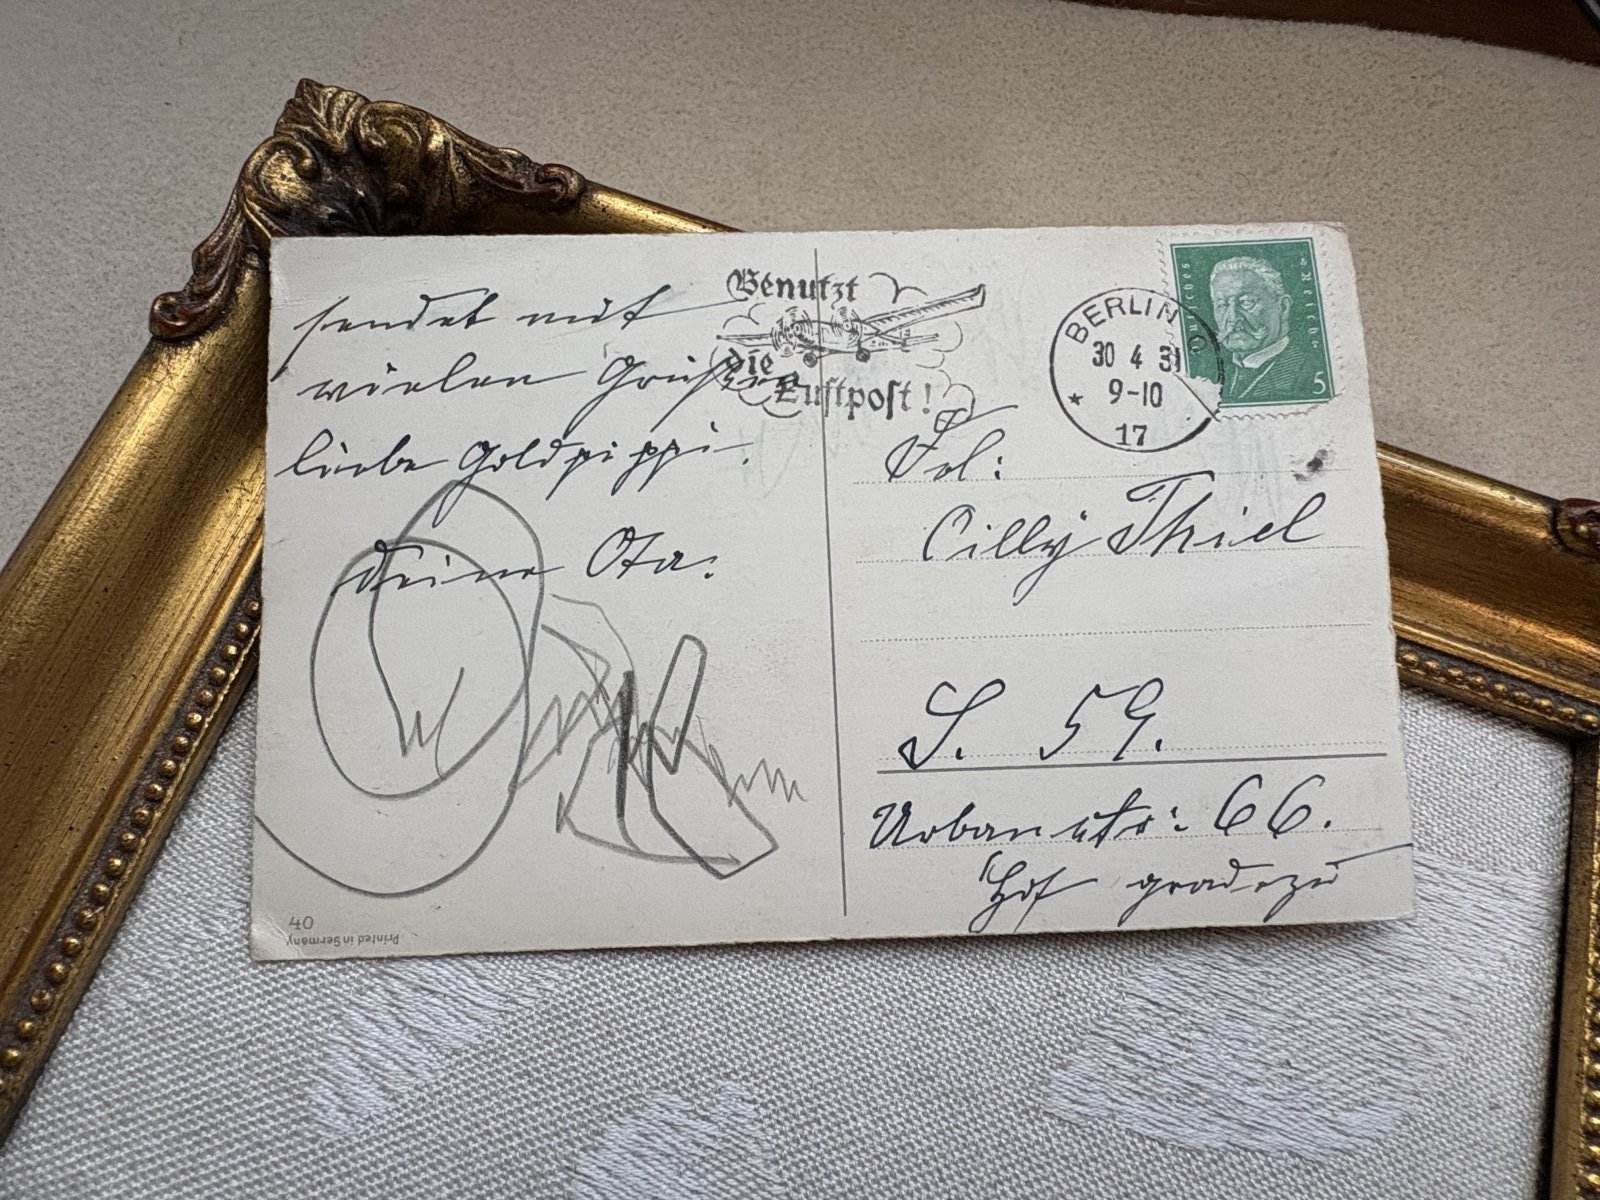 sendet mit
vielen Grüßen
liebe Goldpippi.
Deine Ota.
40
Printed in Germany
Benutzt
die
Luftpost!
BERLIN
30 4 31
9-10
17
Deutsches Reich
5
Frl:
Cilly Thiel
S. 59.
Urbanstr: 66.
Hof gradezu